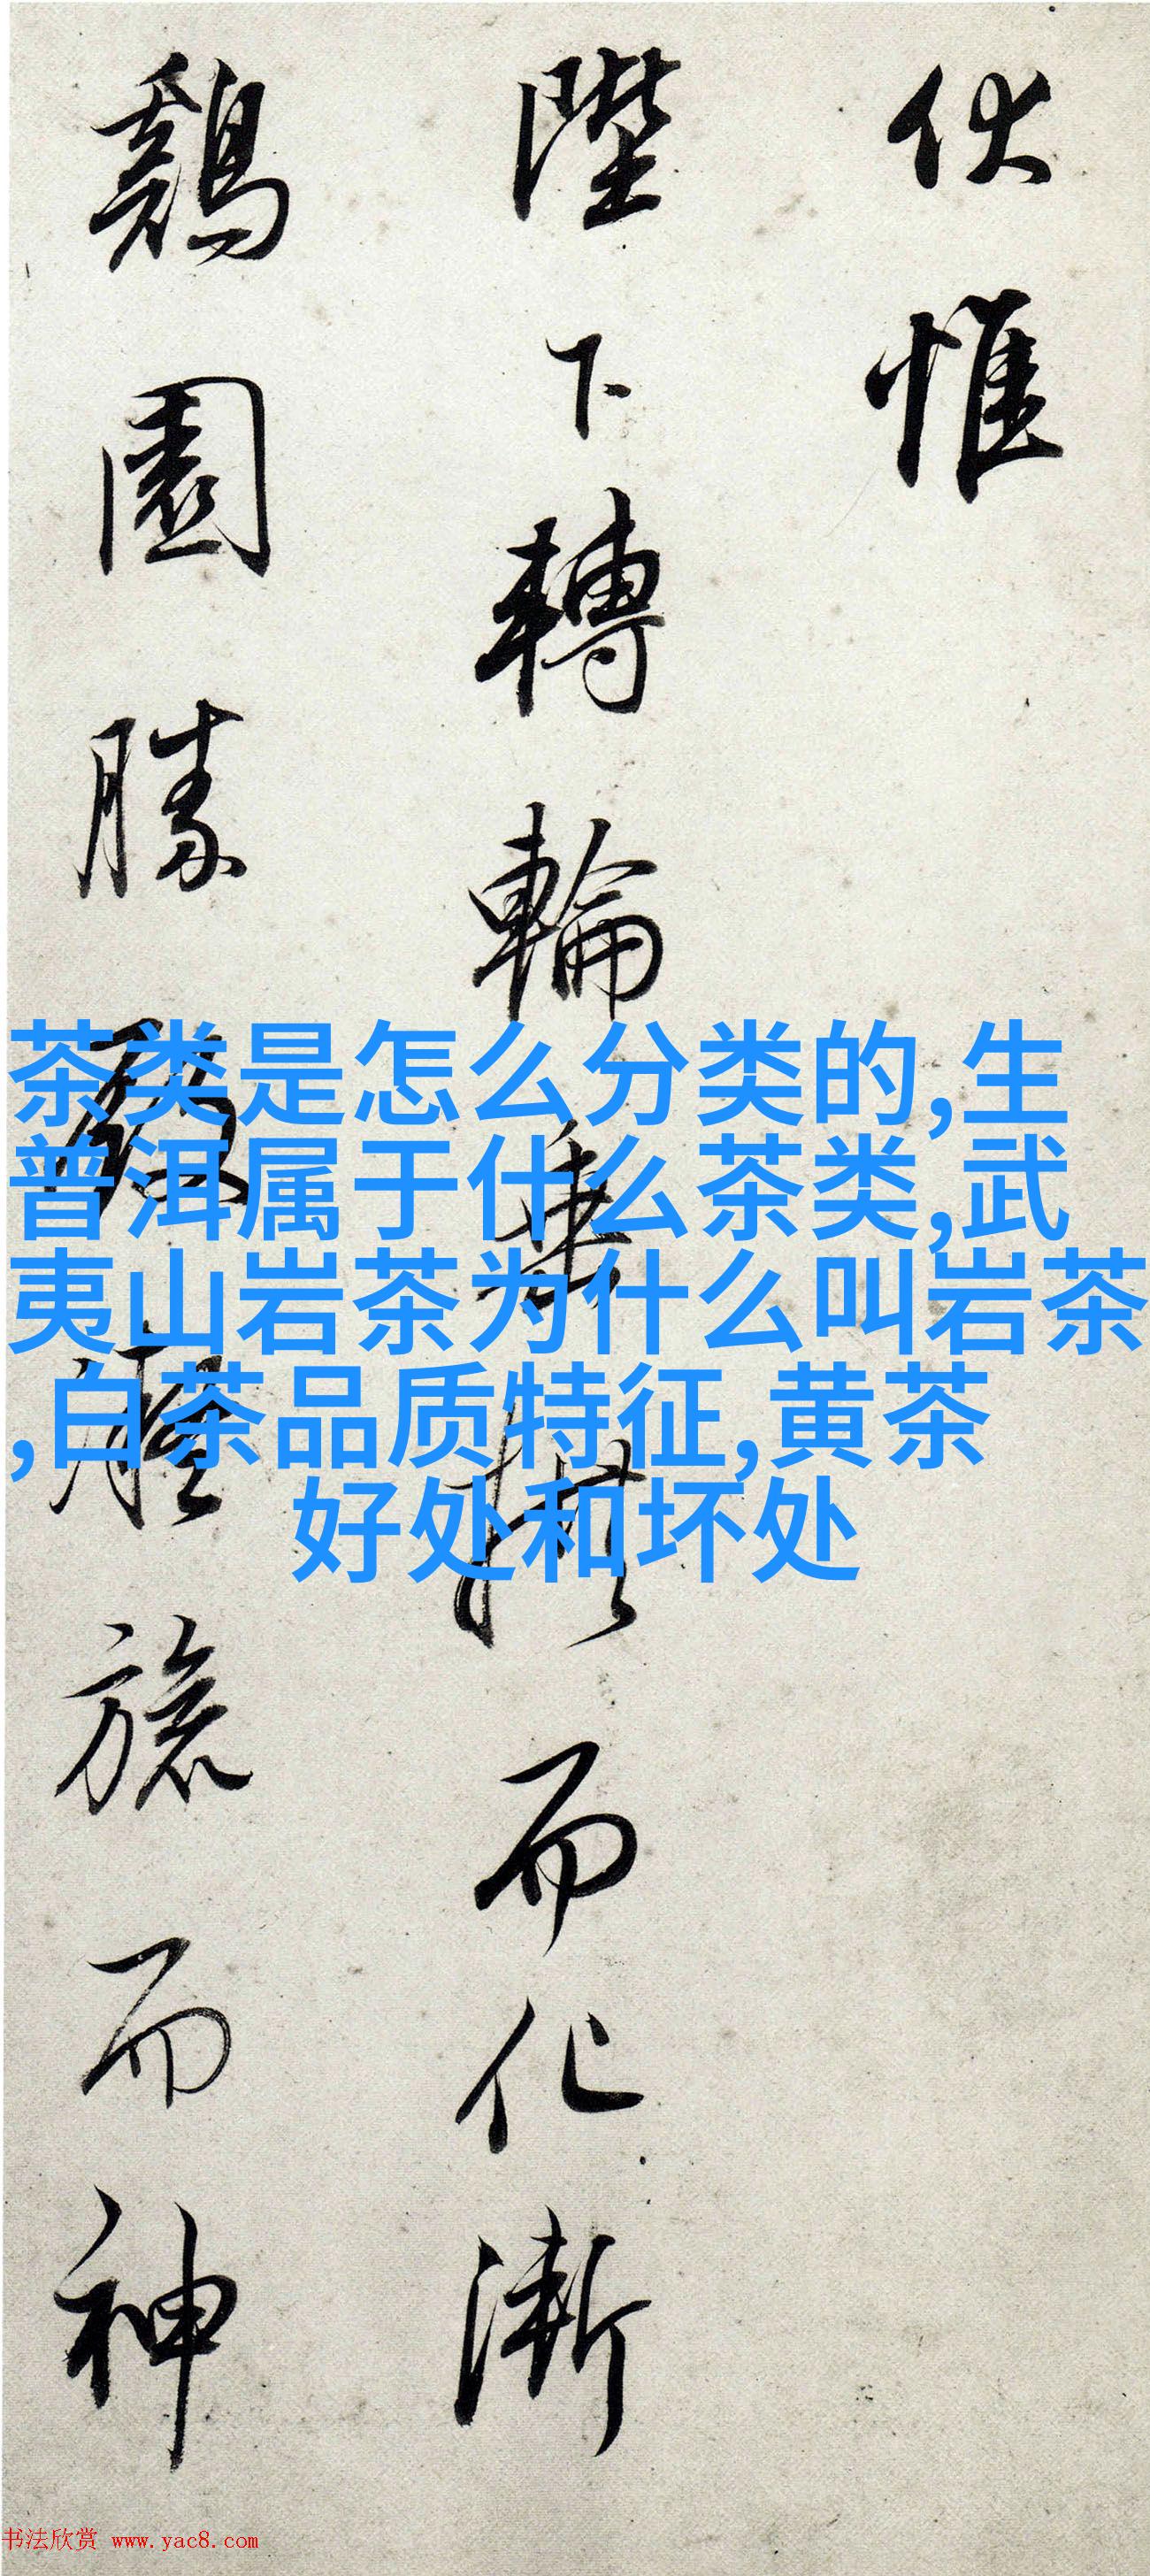 伏惟
陛下轉輪垂拱而化漸
鷄園勝殿旒而神
茶类是怎么分类的,生
普洱属于什么茶类,武
夷山岩茶为什么叫岩茶
,白茶品质特征,黄茶
好处和坏处
书法欣赏 www.yac8.com